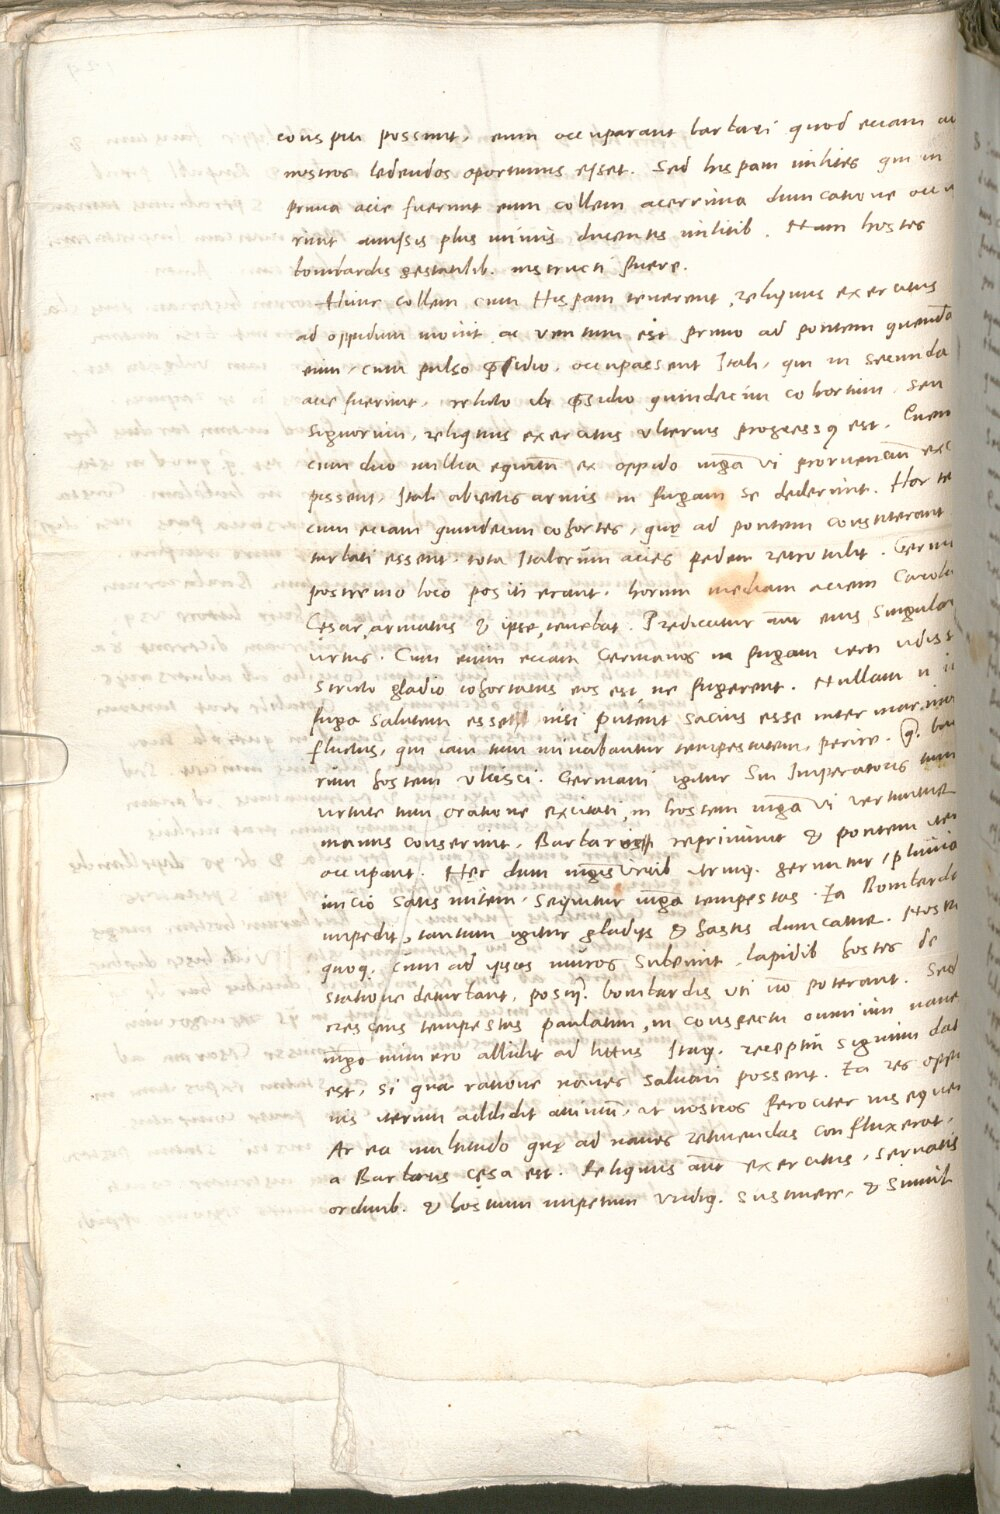 conspui possint, eum occuparant barbari quod eciam ad
nostros ledendos oportunus esset. Sed hispani milites qui in
prima acie fuerunt eum collem acerrima dimicatione occu
runt amissis plus minus ducentis militib. Nam hostes
bombardis gestatilib. instructi fuere.
Hunc collem cum Hispani tenerent, reliquus exercitus
ad oppidum movit ac ventum est primo ad pontem quendā
eum, cum pulso p̄sidio, occupassent Itali, qui in secunda
acie fuerunt, relicto ibi p̄sidio quindecim cohortium, seu
signorum, reliquus exercitus ulterius progressus est. Quem
cum duo millia equitū ex oppido mgā vi proruenciū exc
pissent, Itali abiectis armis in fugam se dederunt. Hoc te
cum eciam quindecim cohortes, quę ad pontem constiterant
turbati essent, tota Italorum acies pedem retro tulit. Germ
postremo loco positi erant, horum mediam aciem Carolu
Cęsar armatus & ipse tenebat. Predicatur aūt eius singular
virtus. Cum enim eciam Germanos in fugam verti vidiss
stricto gladio cohortatus eos est, ne fugerent. Nullam n̄ i
fuga salutem esse nisi putent sacius esse inter mar
fluctus, qui iam tum minabantur tempestatem, perire, q̄. ba
rum hostem ulcisci. Germani igitur Sui Imperatoris tum
virtute tum oratione excitati, in hostem mgā vi vertuntur
manus conserunt, Barbaros reprimunt & pontem iter
occupant. Hęc dum mgis virib utrinq. geruntur, pluvia
inicio satis mitem, sequitur mgā tempestas. Ea Bombardas
impedit, tantum igitur gladijs & hastis dimicatur. Nostri
quoq. cum ad ipsos muros subeunt, lapidib hostes de
statione deturbant, posq̄. bombardis uti nō poterant. Sed
crescens tempestas paulatim, in conspectu omnium naves
mgo numero allidit ad littus Itaq. receptui signum dat
est, si qua ratione naves salvari possent. Ea res oppi
nis iterum addidit animū, ut nostros ferociter inseque
At ea multitudo quę ad naves retinendas confluxerat,
a Barbaris cęsa est. Reliquus aūt exercitus, servatis
ordinib. & hostium impetum undiq. sustinere, & simul